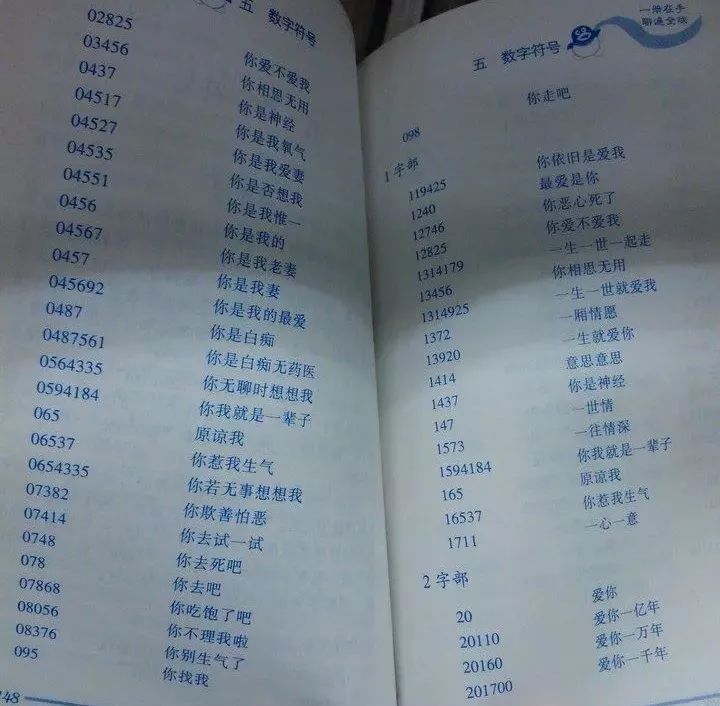 五 数字符号
02825 你爱不爱我
03456 你相思无用
0437 你是神经
04517 你是我氧气
04527 你是我爱妻
04535 你是否想我
04551 你是我惟一
0456 你是我的
04567 你是我老妻
0457 你是我妻
045692 你是我的最爱
0487 你是白痴
0487561 你是白痴无药医
0564335 你无聊时想想我
0594184 你我就是一辈子
065 原谅我
06537 你惹我生气
0654335 你若无事想想我
07382 你欺善怕恶
07414 你去试一试
0748 你去死吧
078 你去吧
07868 你吃饱了吧
08056 你不理我啦
08376 你别生气了
095 你找我
48
一册在手
聊遍全球
五 数字符号
098 你走吧
1字部
119425 你依旧是爱我
1240 最爱是你
12746 你恶心死了
12825 你爱不爱我
1314179 一生一世一起走
13456 你相思无用
1314925 一生一世就爱我
1372 一厢情愿
13920 一生就爱你
1414 意思意思
1437 你是神经
147 一世情
1573 一往情深
1594184 你我就是一辈子
165 原谅我
16537 你惹我生气
1711 一心一意
2字部
20 爱你
20110 爱你一亿年
20160 爱你一万年
201700 爱你一千年